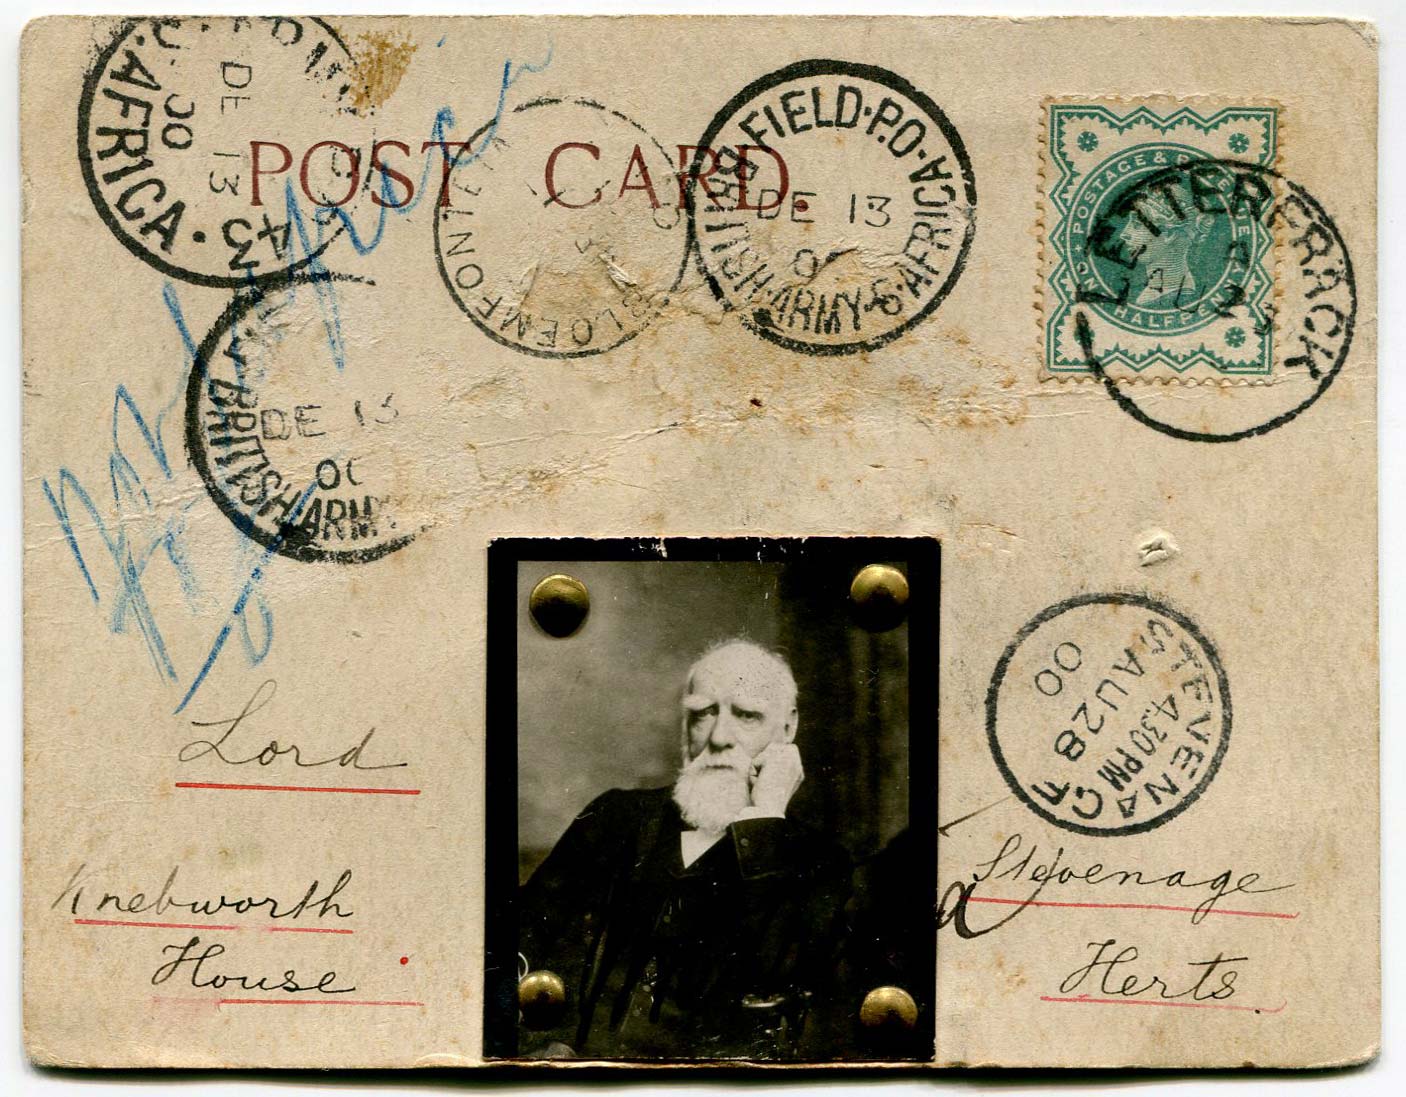 POST CARD.
S. AFRICA.
DE 13
00
43
BLOEMFONTEIN
BRITISH·ARMY·S·AFRICA
FIELD·P.O.
DE 13
POSTAGE & REVENUE
ONE HALFPENNY
LETTERFRACK
A
AU 2
BRITISH·ARMY
DE 13
STEVENAGE
4.30 PM
AU 28
00
Lord
Knebworth
House
Stevenage
Herts